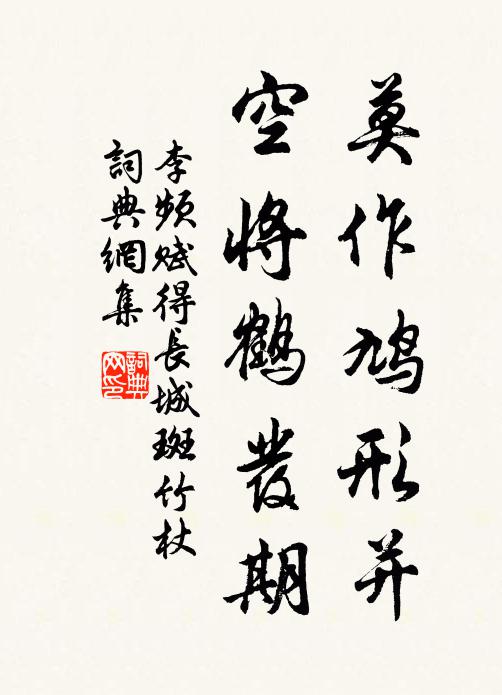 莫作鳩形并
空將鶴發期
李頻賦得長城斑竹杖
詞典網集
詞典网印